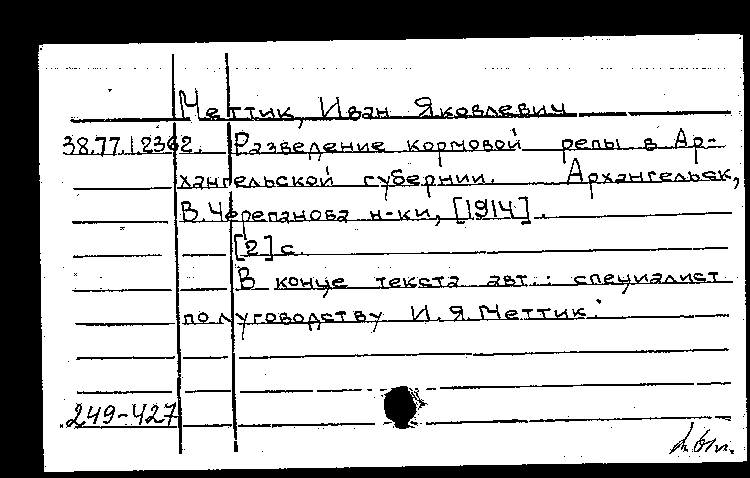 Меттик, Иван Яковлевич
38.77.12362. Разведение кормовой репы в Ар-
хангельской губернии. Архангельск,
В. Черепанова н-ки, [1914].
[2] с.
В конце текста авт.: специалист
по луговодству И.Я. Меттик.
249-427